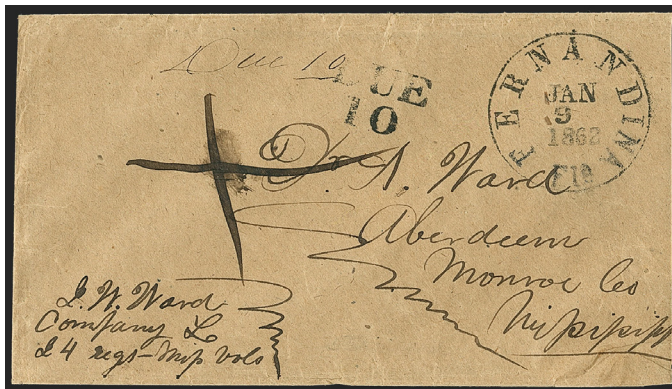 Due 10
DUE
10
FERNANDINA
JAN
9
1862
Fla
Dr. A. Ward
Aberdeen
Monroe Co
Mipipipi
L. W. Ward
Company L
24 regt-Mip vols